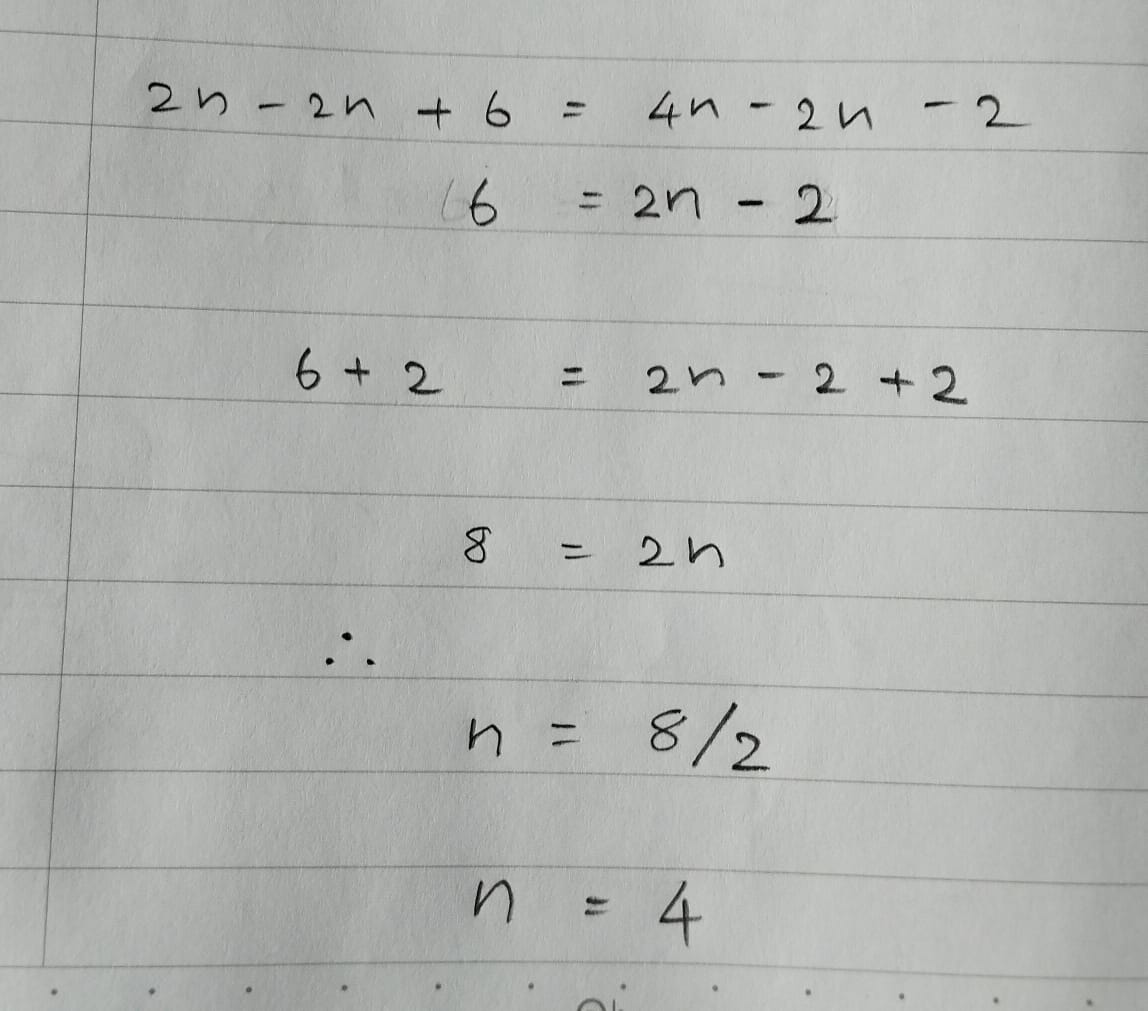 2n - 2n + 6 = 4n - 2n - 2
6 = 2n - 2
6 + 2 = 2n - 2 + 2
8 = 2n
∴
n = 8/2
n = 4